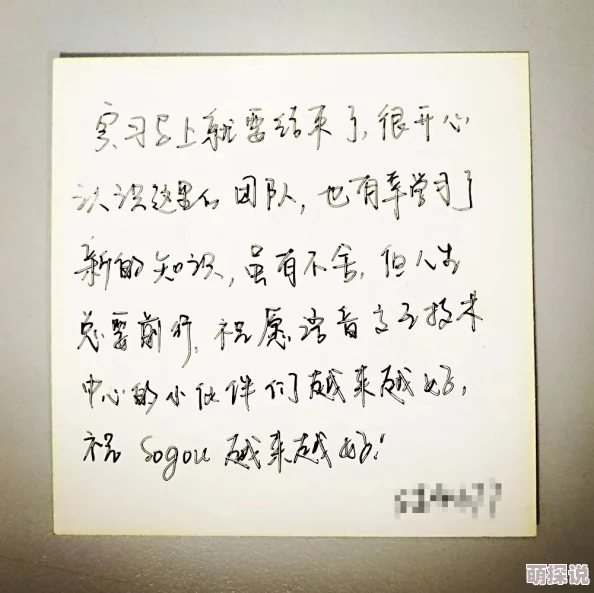 实习马上就要结束了，很开心
认识这里的团队，也有幸学习了
新的知识，虽有不舍，但人生
总要前行，祝愿语音交互技术
中心的小伙伴们越来越好，
祝Sogou越来越好！
萌探说